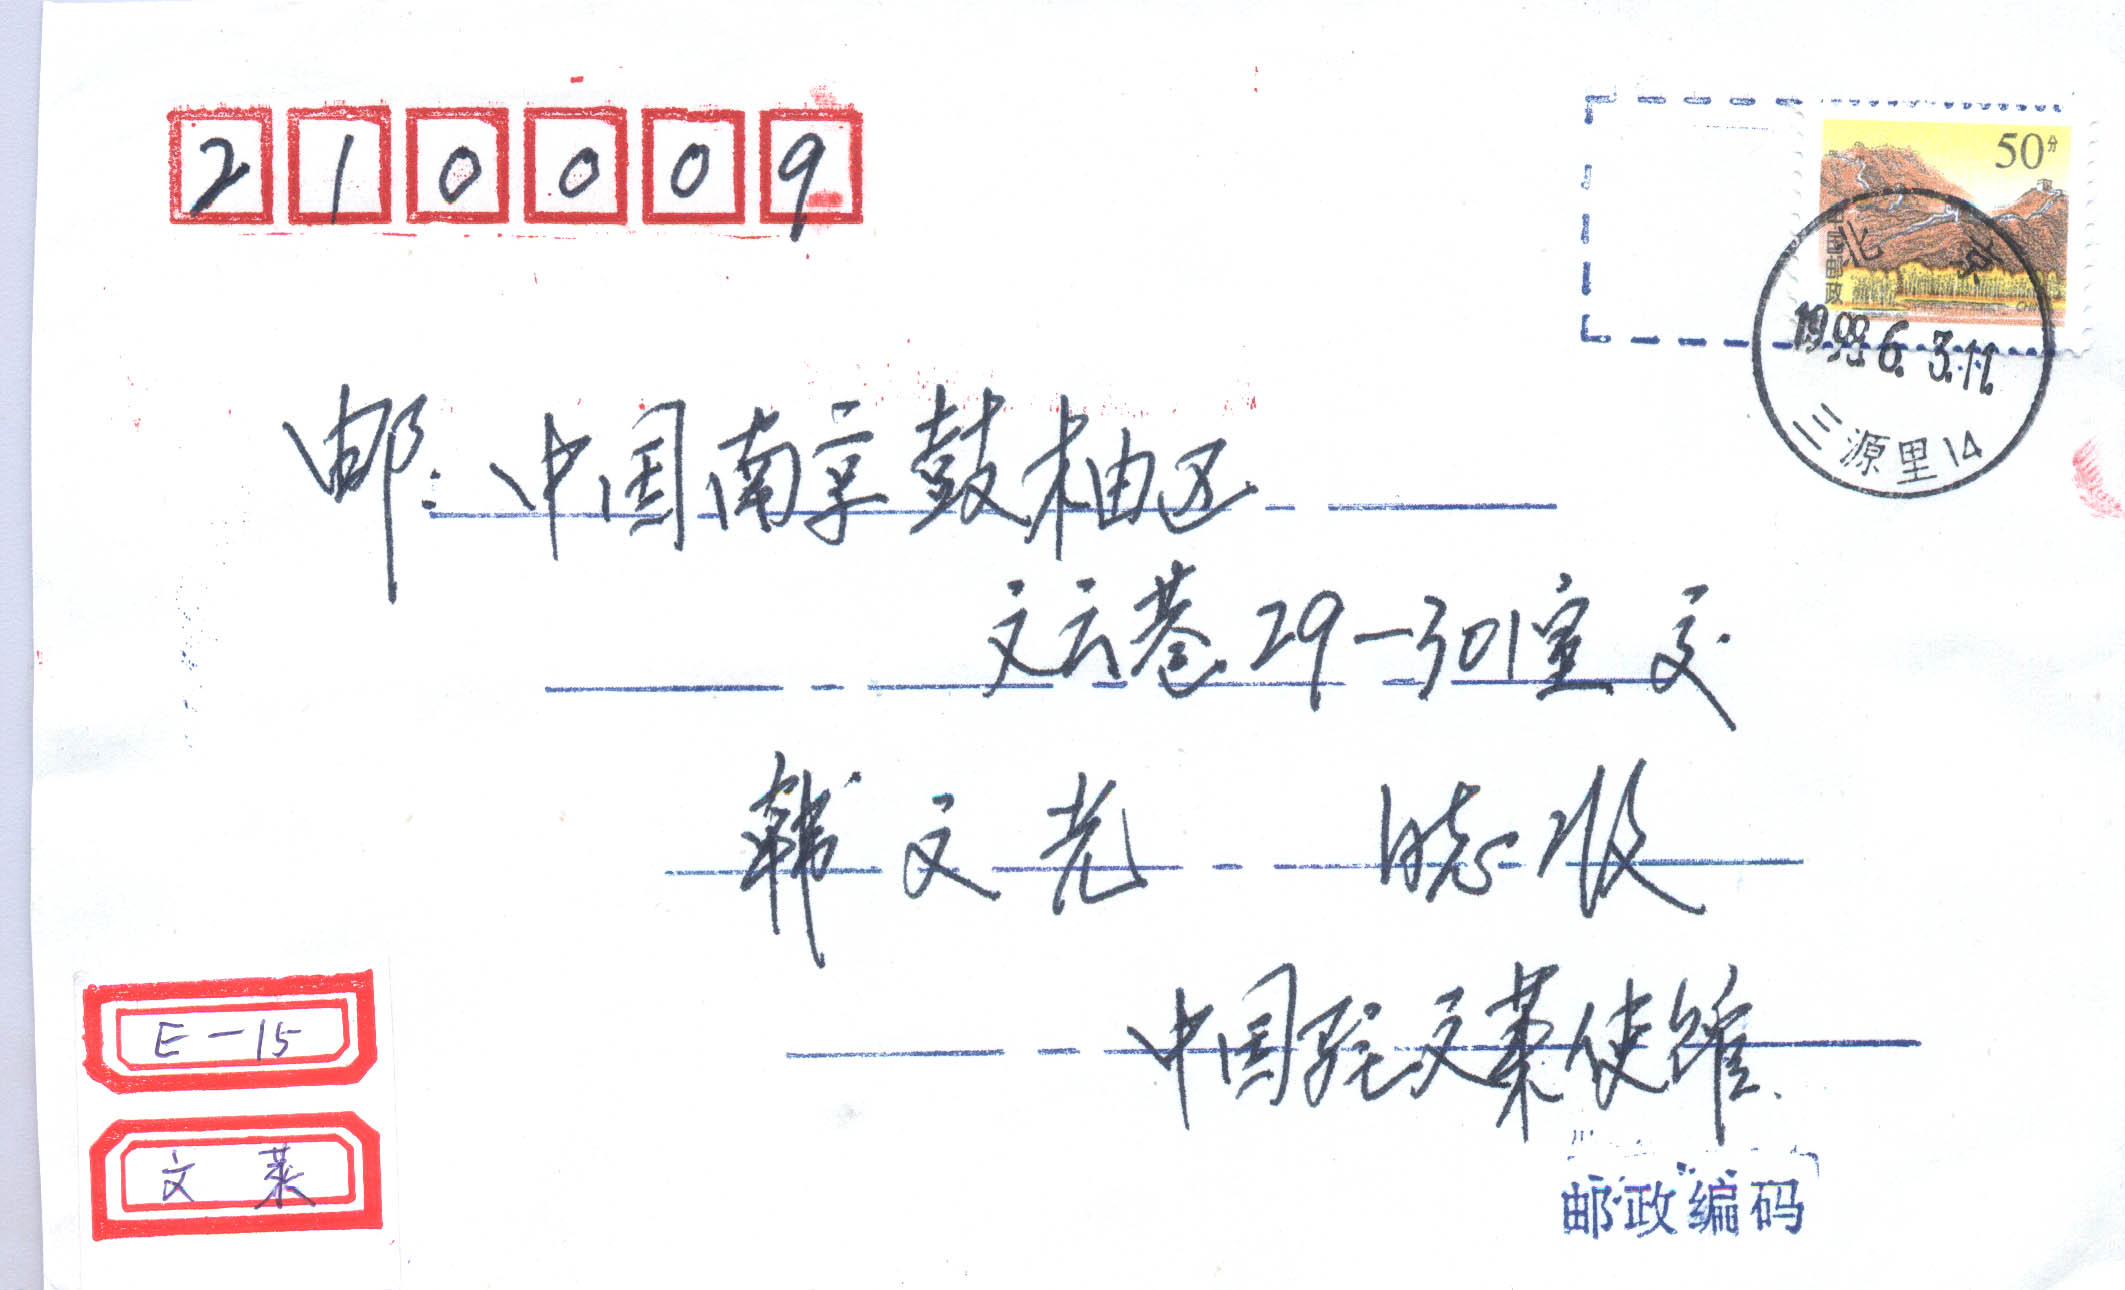 210009
50分
中国邮政
北京
1999.6.3.11
三源里14
邮:中国南京鼓楼区
文云巷29-301室 交
韩文光 同志收
中国驻文莱使馆
E-15
文莱
邮政编码